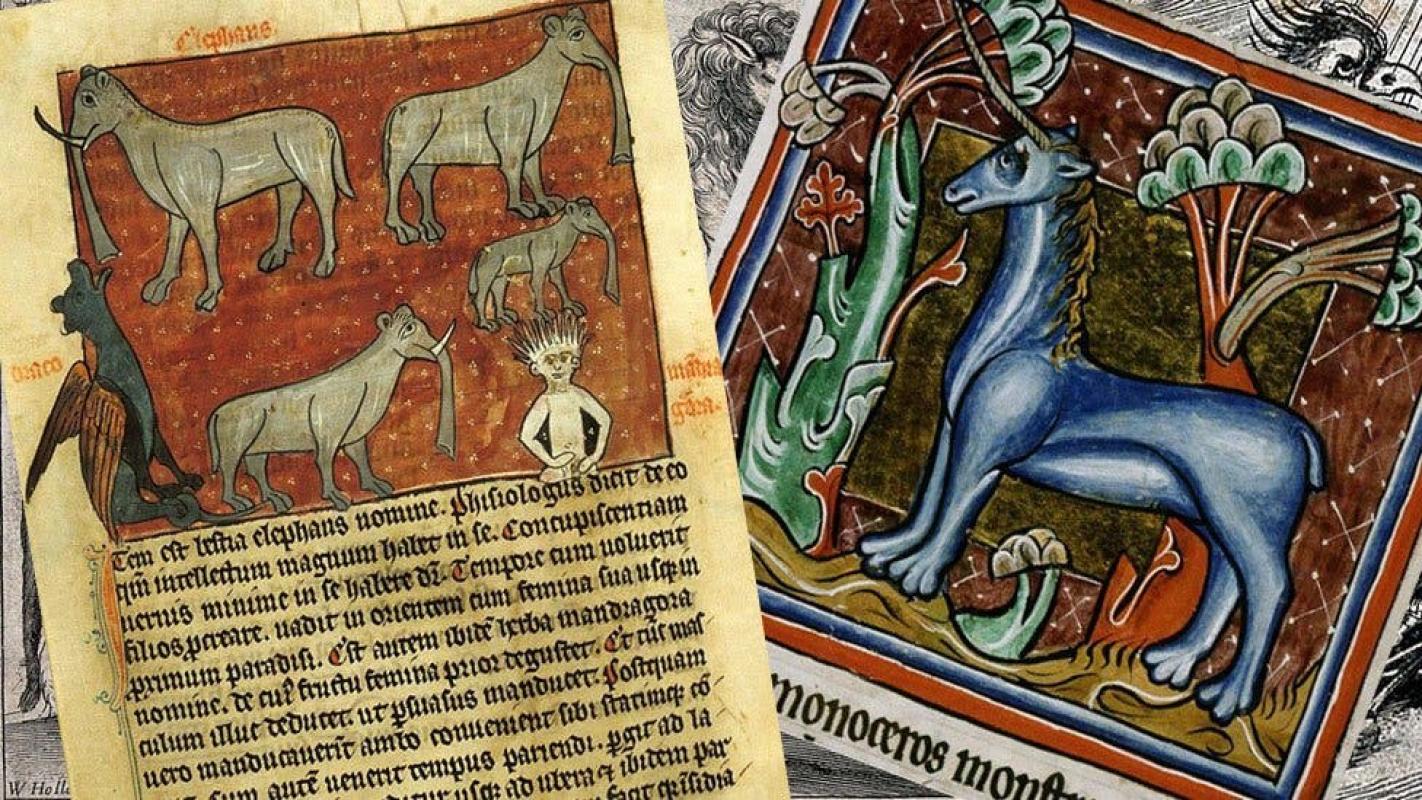 Elephans
draco
mādra
gora.
Tem est bestia elephans nomine. Phisiologus dicit de eo
qm̄ intellectum magnum habet in se. Concupiscentiam
uernis minime in se habere dr̄. Tempore cum uoluerit
filios ꝑcreare. uadit in orientem cum femina sua usq; in
primum paradisi. Est autem ibitē herba mandragora
nomine. de cuꝰ fructu femina prior degustet. Et mas
culum illuc deducet. ut ꝑsuasus manducet. Postquam
uero manducauerīt conuenient sibi statimq; cō
autē uenerit tempus pariendi. ꝑgit ad la
usq; ad ubera & ibidem par
monoceros monst
W Holl